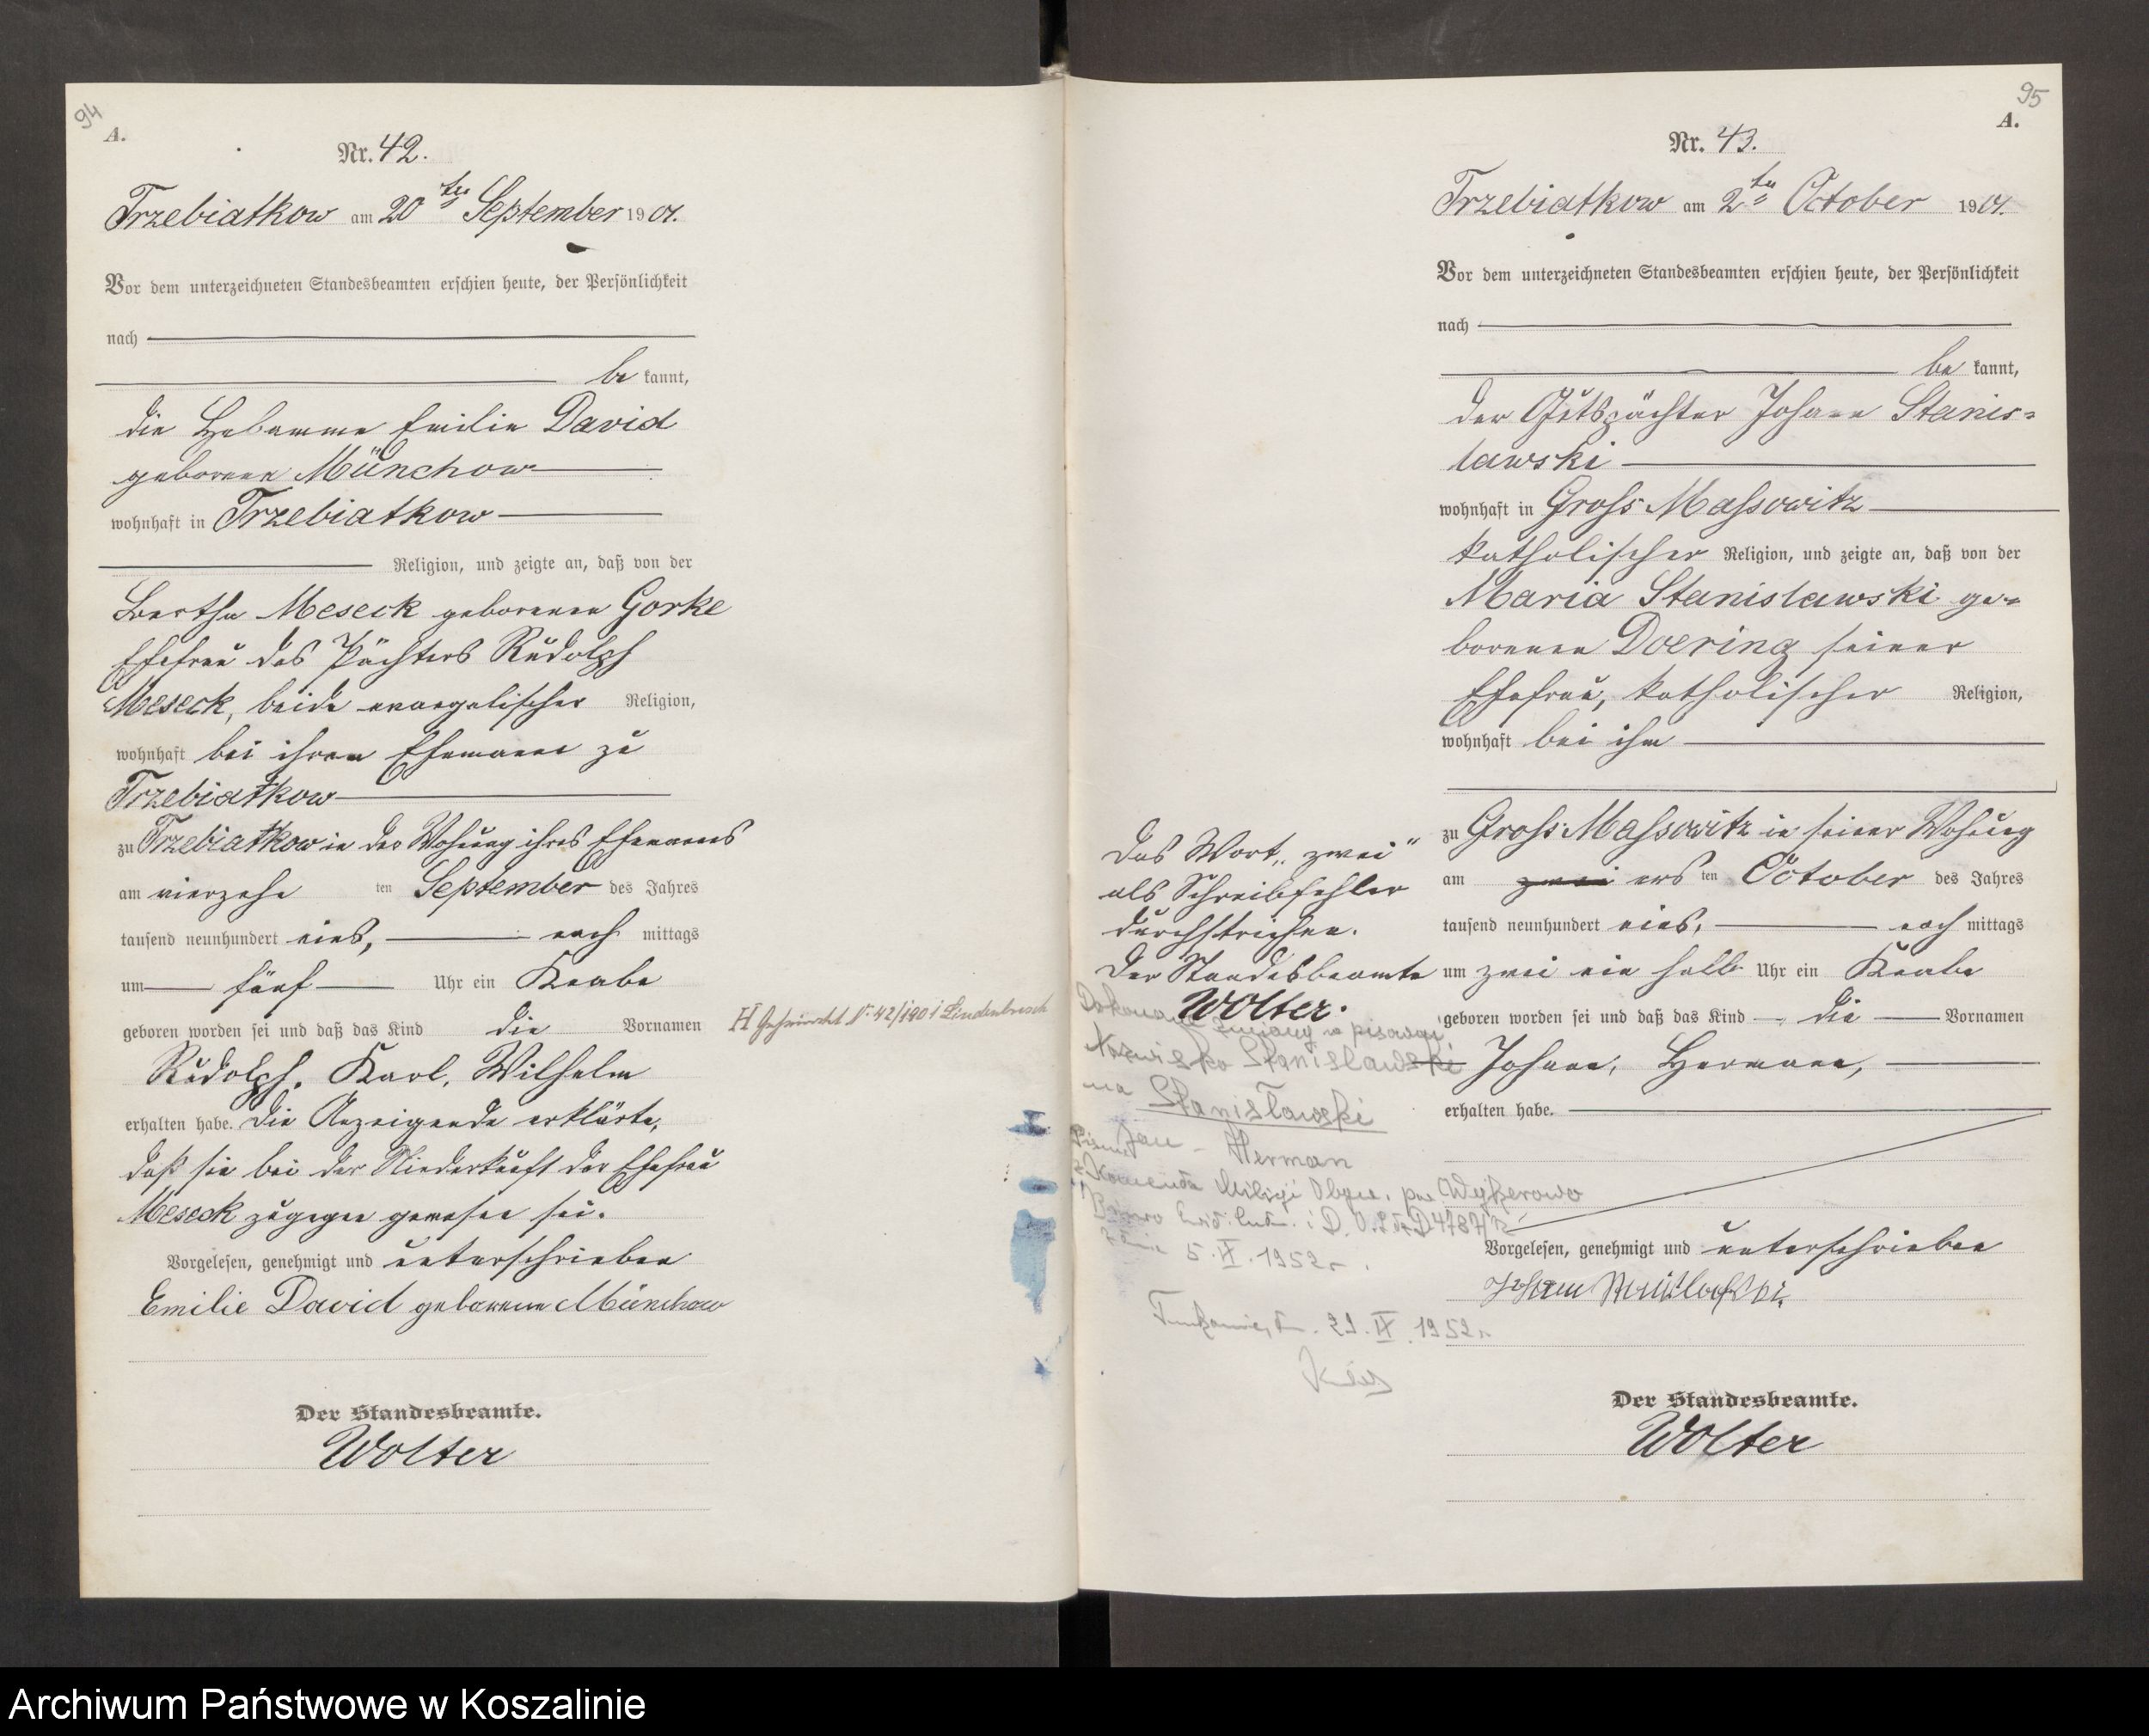 94
A.
Nr. 42.
Trzebiatkow am 20ten September 1901.
Vor dem unterzeichneten Standesbeamten erschien heute, der Persönlichkeit
nach
be kannt,
die Hebamme Emilie David
geborene Münchow
wohnhaft in Trzebiatkow
Religion, und zeigte an, daß von der
Bertha Meseck geborenen Gorke
Ehefrau des Pächters Rudolph
Meseck, beide evangelischer Religion,
wohnhaft bei ihrem Ehemanne zu
Trzebiatkow
zu Trzebiatkow in der Wohnung ihres Ehemannes
am vierzehn ten September des Jahres
tausend neunhundert eins, nach mittags
um fünf Uhr ein Knabe
geboren worden sei und daß das Kind die Vornamen
Rudolph, Karl, Wilhelm
erhalten habe. Die Anzeigende erklärte,
daß sie bei der Niederkunft der Ehefrau
Meseck zugegen gewesen sei.
Vorgelesen, genehmigt und unterschrieben
Emilie David geborene Münchow
Der Standesbeamte.
Wolter
H Geheiratet Nr. 42/1901
95
A.
Nr. 43.
Trzebiatkow am 2ten October 1901.
Vor dem unterzeichneten Standesbeamten erschien heute, der Persönlichkeit
nach
be kannt,
der Gutspächter Johann Stanis=
lawski
wohnhaft in Gross Massowitz
katholischer Religion, und zeigte an, daß von der
Maria Stanislawski ge=
borenen Doering seiner
Ehefrau, katholischer Religion,
wohnhaft bei ihm
zu Gross Massowitz in seiner Wohnung
am zwei ers ten October des Jahres
tausend neunhundert eins, nach mittags
um zwei ein halb Uhr ein Knabe
geboren worden sei und daß das Kind die Vornamen
Johann, Hermann,
erhalten habe.
Vorgelesen, genehmigt und unterschrieben
Johann Stanislawski
Der Standesbeamte.
Wolter
Das Wort „zwei"
als Schreibfehler
durchstrichen.
Der Standesbeamte
Wolter.
Dokonano zmiany w pisowni
Nazwisko Stanislawski
na Stanisławski
Jan - Herman
Komenda Milicji Obyw. pow. Wejherowo
5.IX.1952r.
21.IX.1952r.
Archiwum Państwowe w Koszalinie